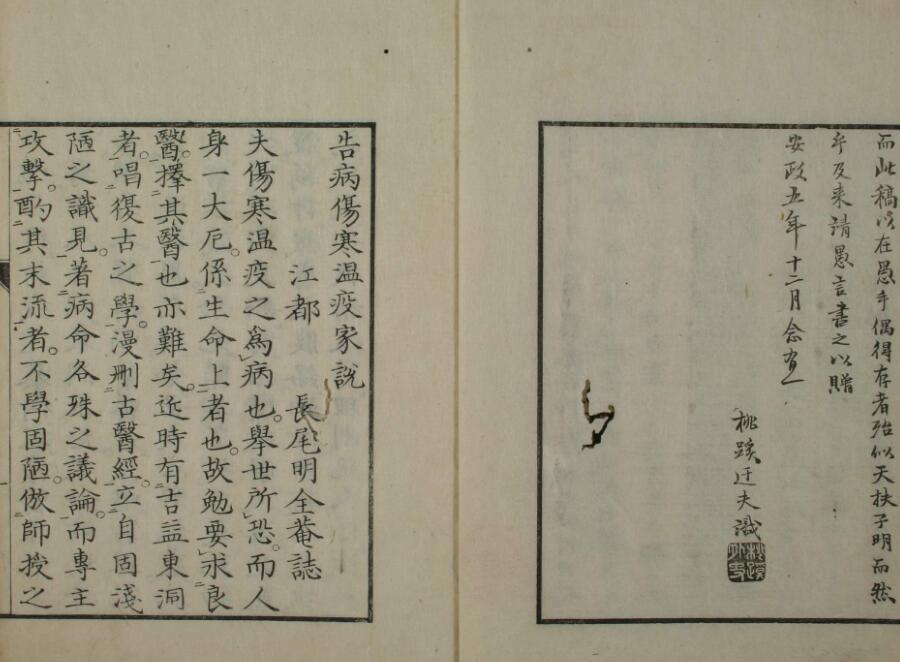 而此稿以在愚手偶得存者殆似天扶子明而然
乎及来請愚言書之以贈
安政五年十二月念五
桃蹊迂夫識
告病傷寒温疫家説
江都　長尾明全菴誌
夫傷寒温疫之為病也。舉世所恐。而人
身一大厄。係生命上者也。故勉要求良
醫。擇其醫也亦難矣。近時有吉益東洞
者。唱復古之學。漫刪古醫經。立自固淺
陋之識見。著病命各殊之議論。而專主
攻擊。酌其末流者。不學固陋。倣師授之